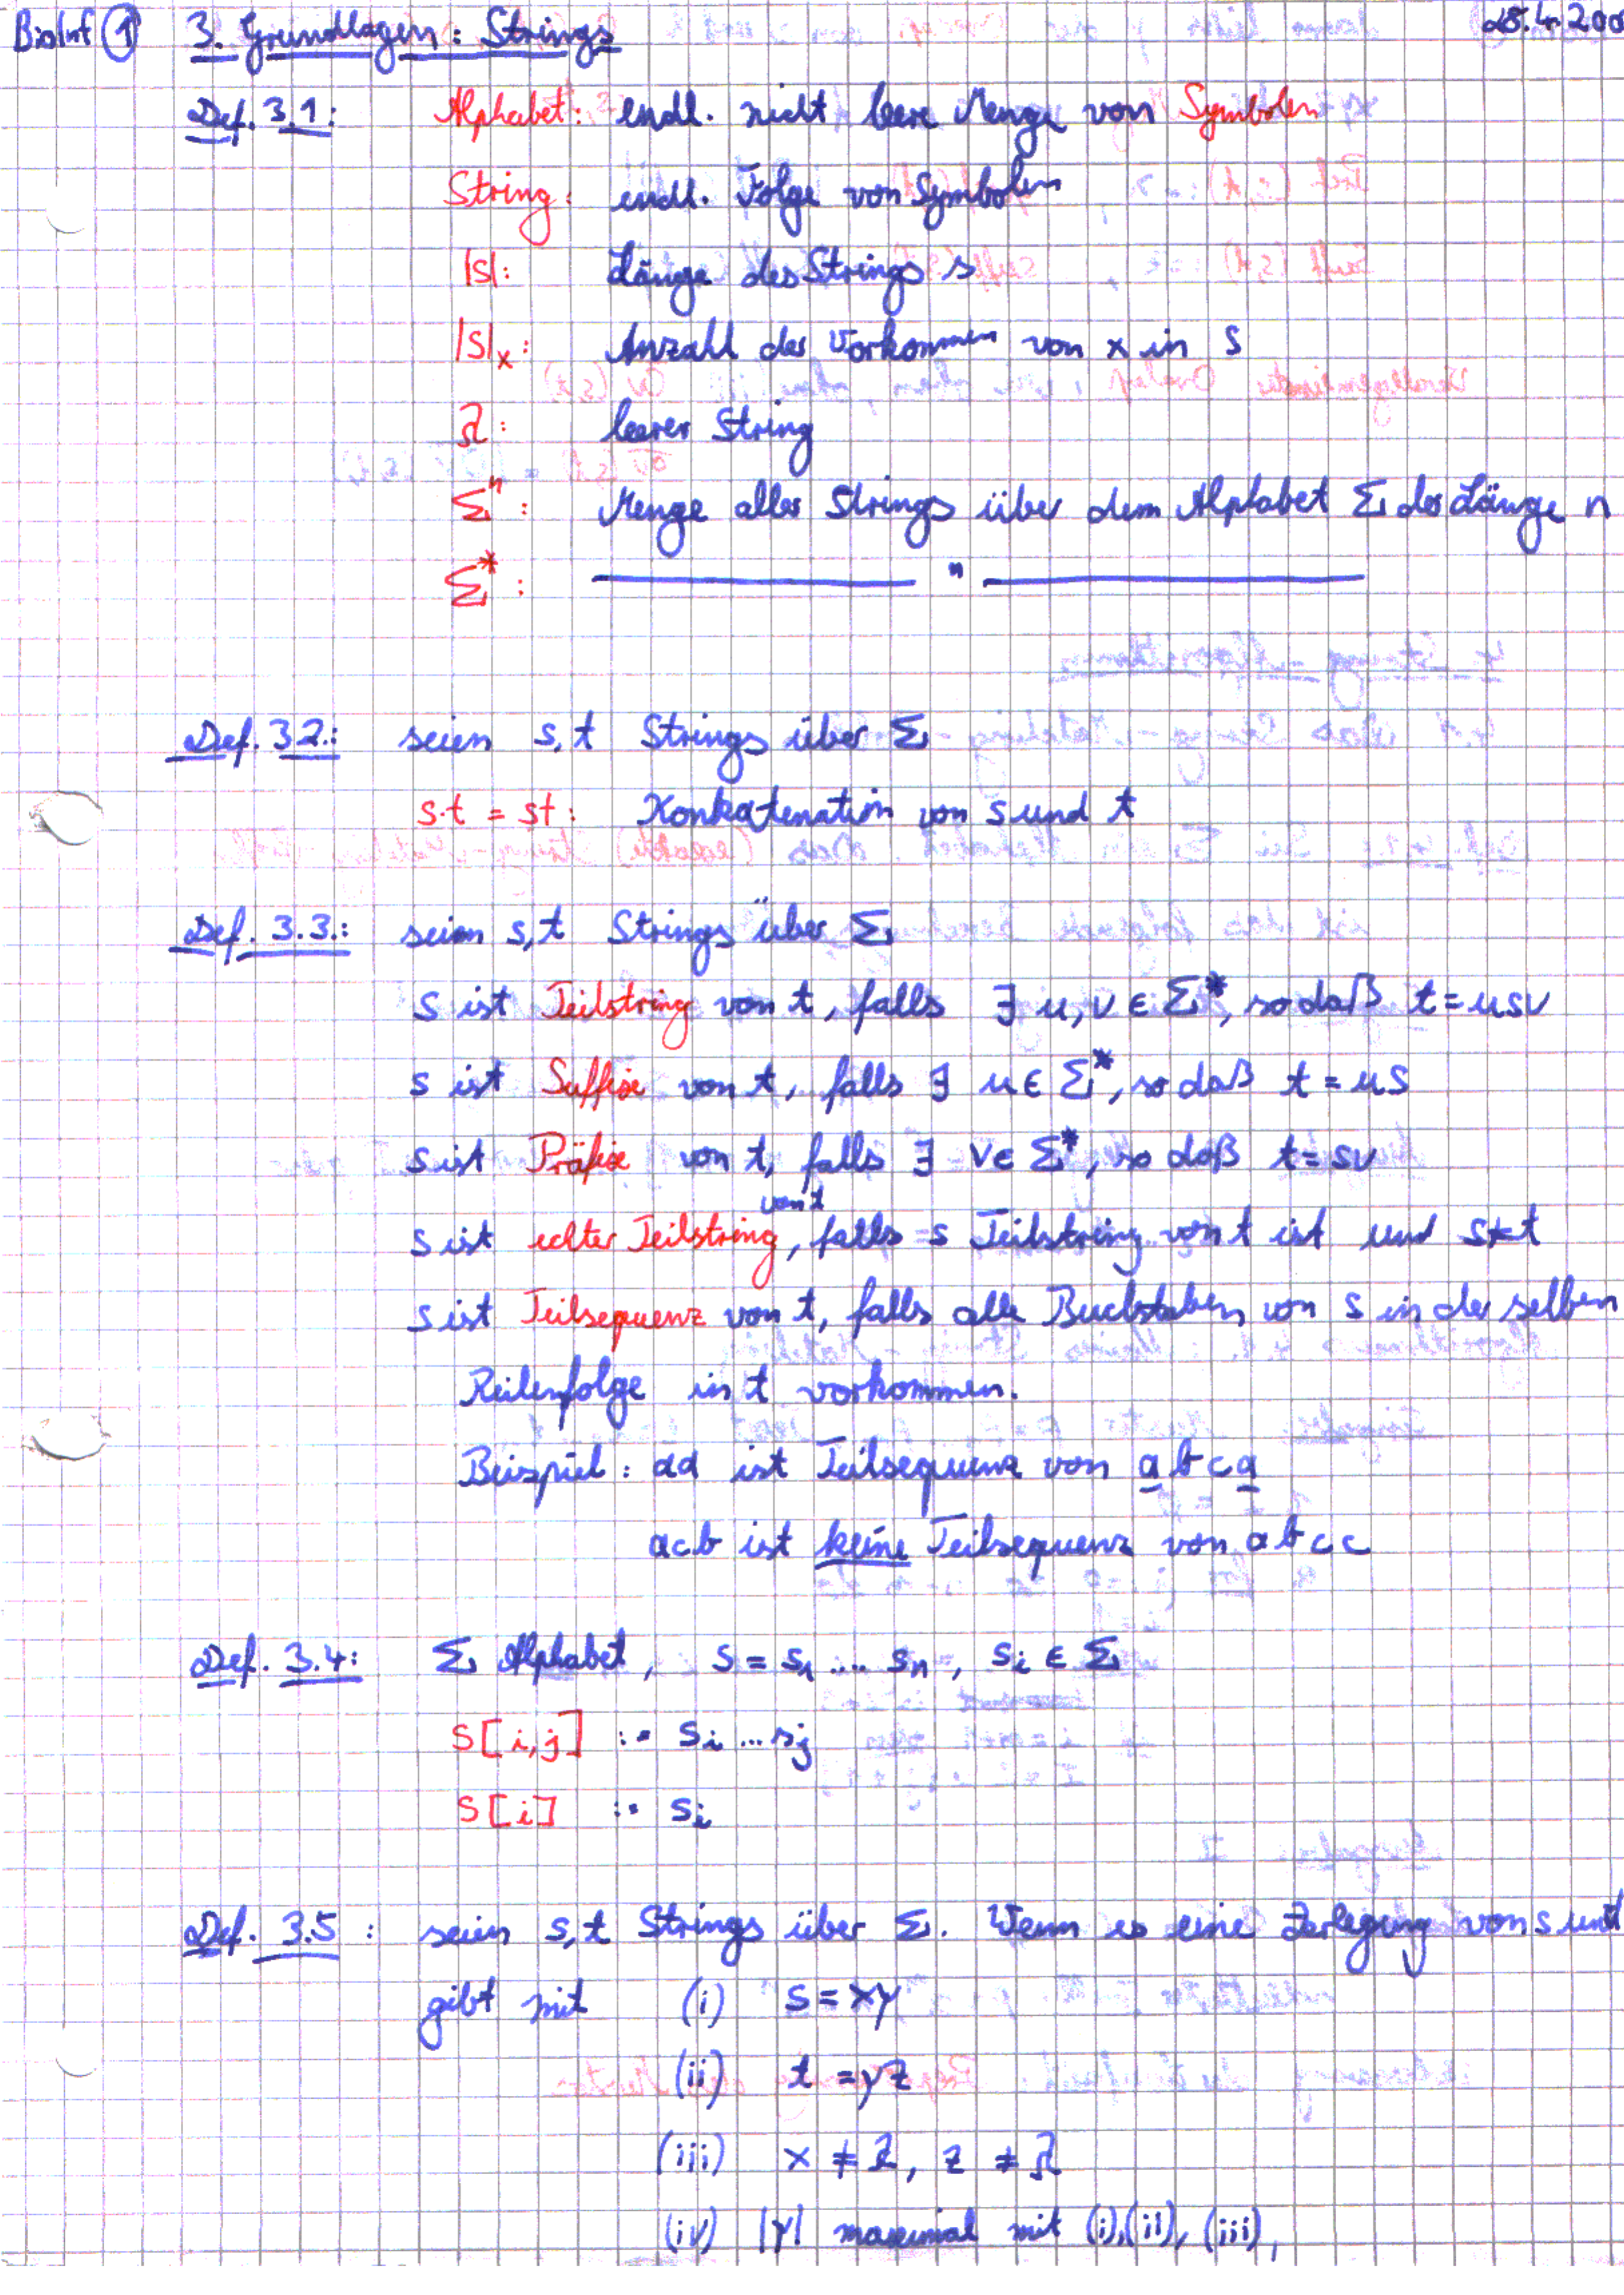 BioInf ① 3. Grundlagen: Strings 25.4.200
Def. 3.1: Alphabet: endl. nicht leere Menge von Symbolen
String: endl. Folge von Symbolen
|s|: Länge des Strings s
|s|ₓ: Anzahl der Vorkommen von x in s
λ: leerer String
Σⁿ: Menge aller Strings über dem Alphabet Σ der Länge n
Σ*: ——— " ———
Def. 3.2.: seien s,t Strings über Σ
s·t = st: Konkatenation von s und t
Def. 3.3.: seien s,t Strings über Σ
s ist Teilstring von t, falls ∃ u,v ∈ Σ*, so daß t = usv
s ist Suffix von t, falls ∃ u ∈ Σ*, so daß t = us
s ist Präfix von t, falls ∃ v ∈ Σ*, so daß t = sv
s ist echter Teilstring von t, falls s Teilstring von t ist und s ≠ t
s ist Teilsequenz von t, falls alle Buchstaben von s in der selben
Reihenfolge in t vorkommen.
Beispiel: aa ist Teilsequenz von abca
acb ist keine Teilsequenz von abcc
Def. 3.4: Σ Alphabet, s = s₁ .... sₙ, sᵢ ∈ Σ
s[i,j] := sᵢ ... sⱼ
s[i] := sᵢ
Def. 3.5: seien s,t Strings über Σ. Wenn es eine Zerlegung von s und
gibt mit (i) s = xy
(ii) t = yz
(iii) x ≠ λ, z ≠ λ
(iv) |y| maximal mit (i),(ii),(iii),